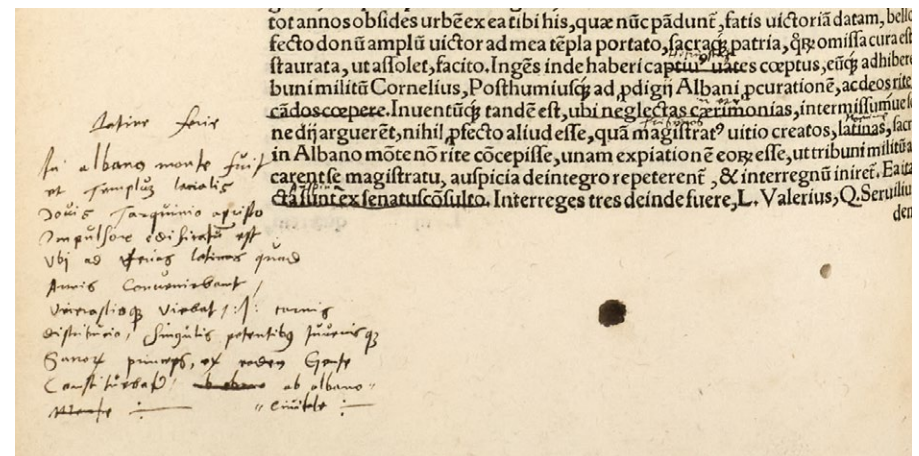 tot annos obsides urbē ex ea tibi his, quæ nūc pādunt̃, fatis uictoriā datam, bello
fecto donū amplū uictor ad mea tēpla portato, sacraq́; patria, omissa cura est
staurata, ut assolet, facito. Ingēs inde haberi captiuꝰ uates cœptus, eūq́; adhibere
buni militū Cornelius, Posthumiusq́; ad ꝓdigij Albani ꝓcurationē, ac deos rite
cādos cœpere. Inuentūq́; tandē est, ubi neglectas cærimonias, intermissumue
ne dij arguerēt, nihil ꝓfecto aliud esse, quā magistratꝰ uitio creatos, latinas, sacr
in Albano mōte nō rite cōcepisse, unam expiationē eoꝝ esse, ut tribuni militū
carent se magistratu, auspicia de integro repeterent̃, & interregnū iniret̃. Ea ita
cta sunt ex senatuscōsulto. Interreges tres deinde fuere, L. Valerius, Q. Seruiliu
den
Latine ferie
In albano monte fuit
et templuȝ latialis
Jouis Tarquinio
Impulsore edificatū est
Vbi ad ferias latinas
Annis Conueniebant
carnis
distributio, singulis petentibꝰ
princeps, ex eadem Gente
ab albano
Ciuitate